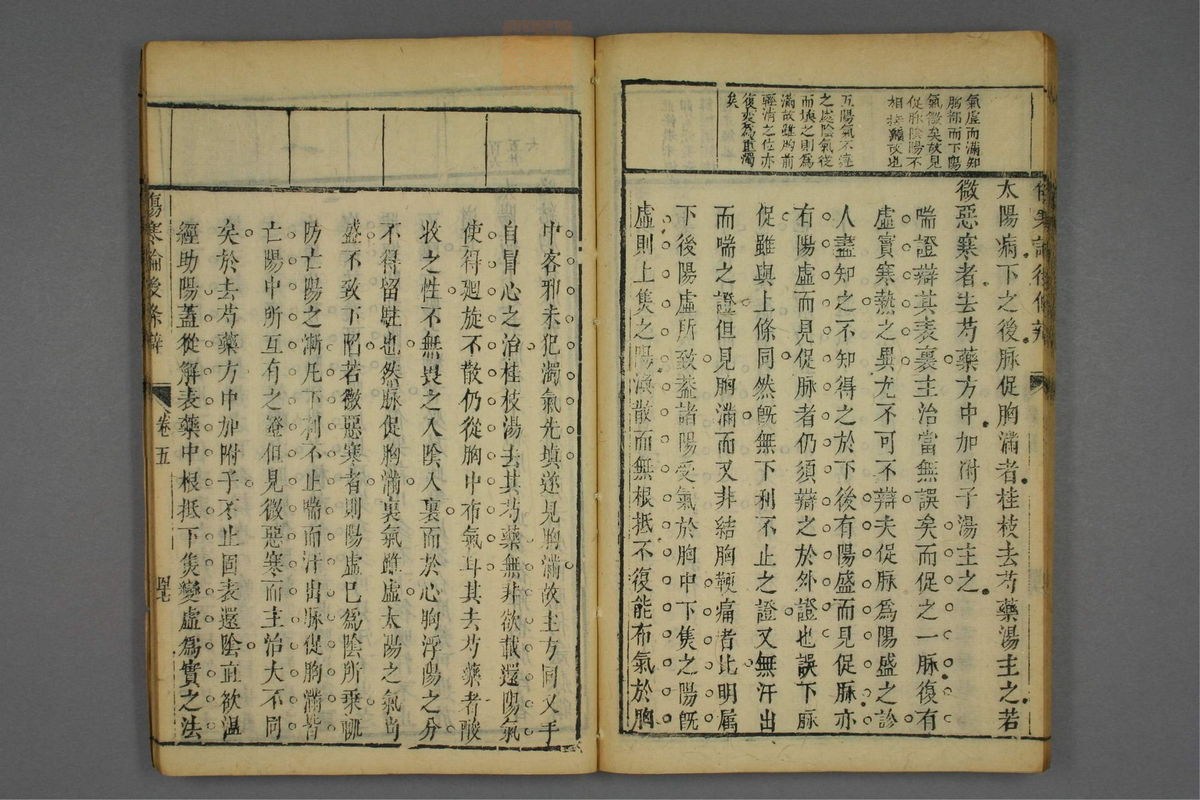 氣虛而滿知
胸部而下陽
氣微矣故見
促脉陰陽不
相接續故也
五陽氣不達
之處陰氣從
而填之則爲
滿故雖胸前
輕清之位亦
復變爲重濁
矣
傷寒論後條辨
太陽病下之後脉促胸滿者桂枝去芍藥湯主之若
微惡寒者去芍藥方中加附子湯主之
喘證辯其表裏主治當無誤矣而促之一脉復有
虛實寒熱之異尤不可不辯夫促脉爲陽盛之診
人盡知之不知得之於下後有陽盛而見促脉亦
有陽虛而見促脉者仍須辯之於外證也誤下脉
促雖與上條同然旣無下利不止之證又無汗出
而喘之證但見胸滿而又非結胸鞕痛者比明屬
下後陽虛所致葢諸陽受氣於胸中下焦之陽旣
虛則上焦之陽渙散而無根抵不復能布氣於胸
中客邪未犯濁氣先填遂見胸滿故主方同叉手
自冒心之治桂枝湯去其芍藥無非欲載還陽氣
使得廻旋不散仍從胸中布氣耳其去芍藥者酸
收之性不無畏之入陰入裏而於心胸浮陽之分
不得留駐也然脉促胸滿裏氣雖虛太陽之氣尚
盛不致下陷若微惡寒者則陽虛已爲陰所乘
防亡陽之漸凡下利不止喘而汗出脉促胸滿皆
亡陽中所互有之證但見微惡寒而主治大不同
矣於去芍藥方中加附子不止固表還陰直欲溫
經助陽蓋從解表藥中根抵下焦變虛爲實之法
傷寒論後條辨
卷五
四七